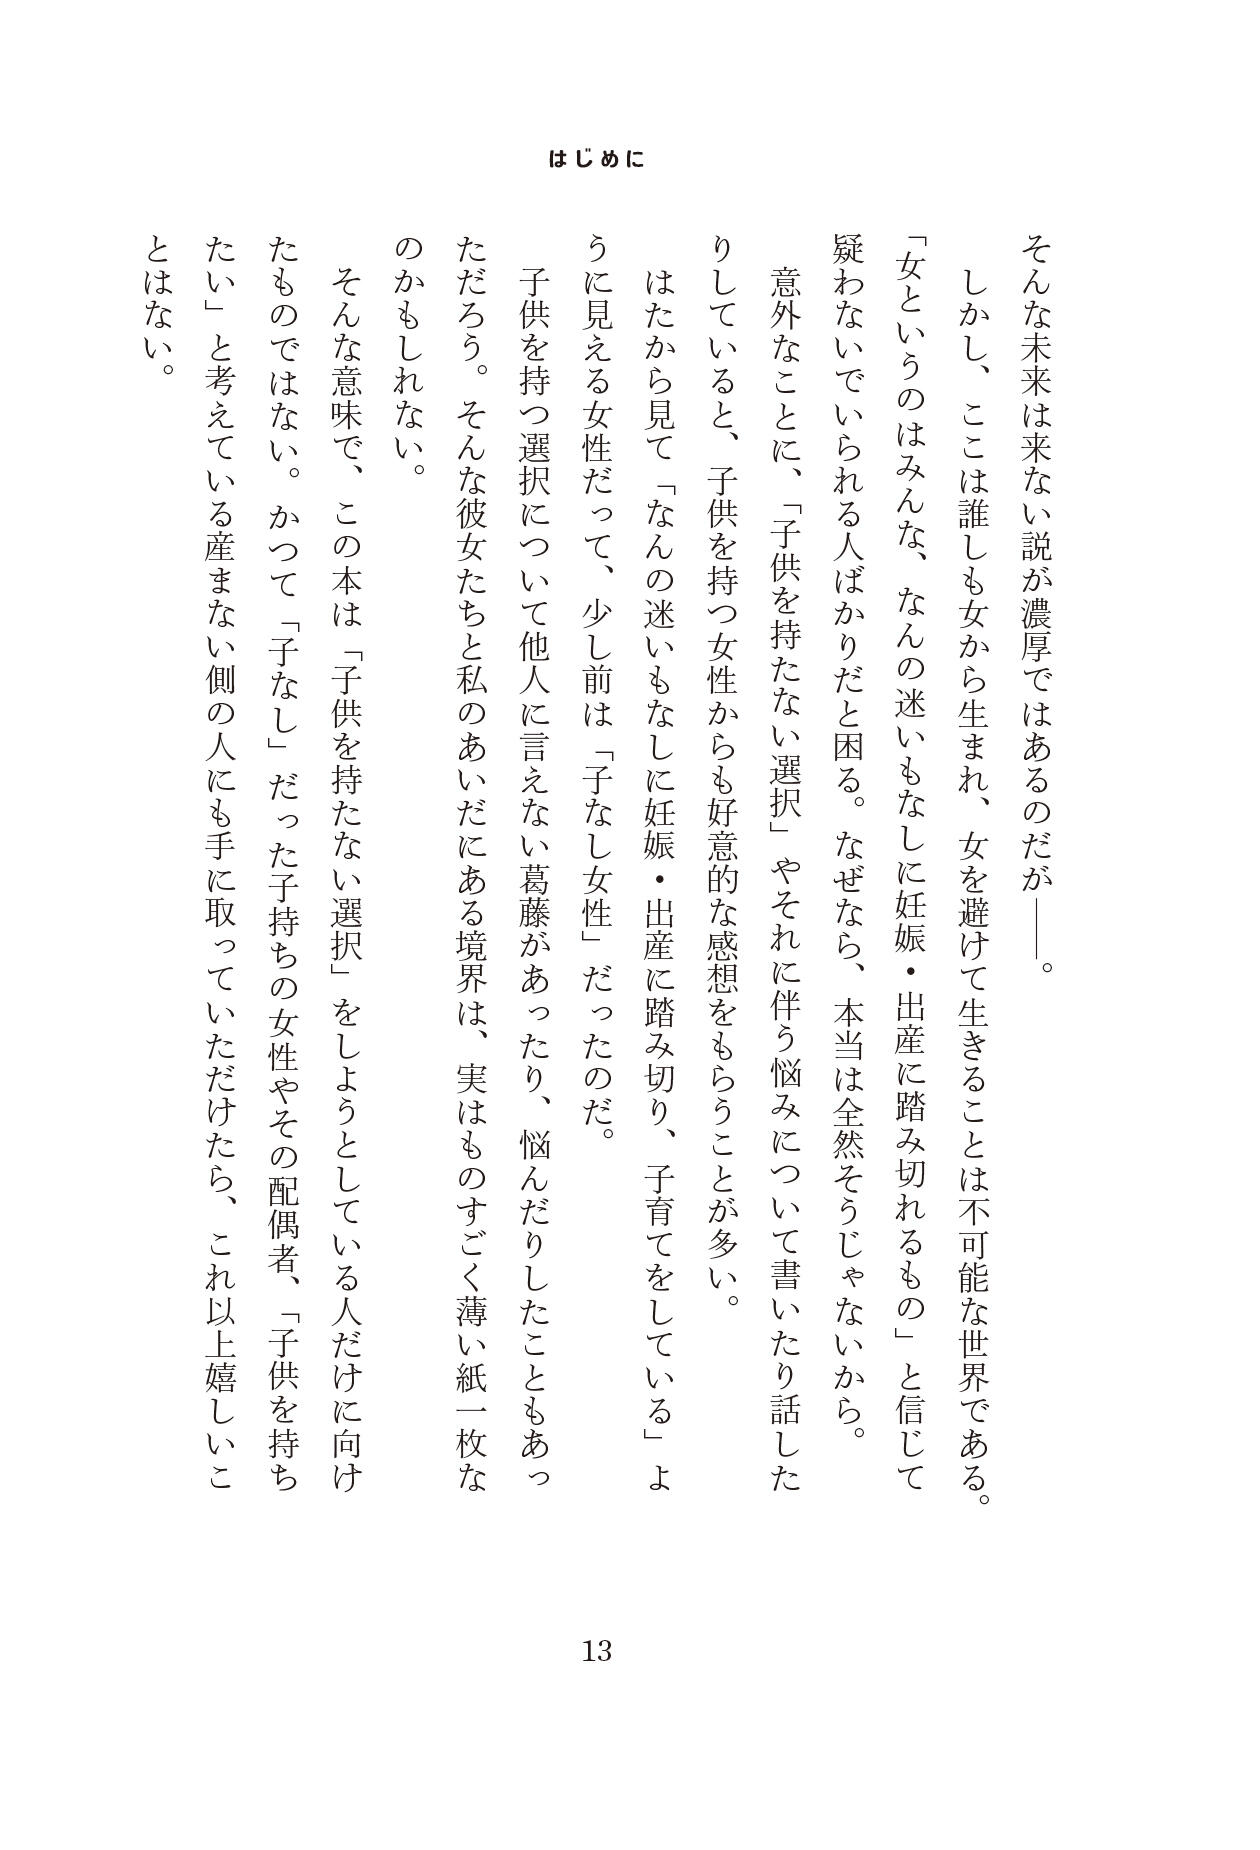 はじめに
そんな未来は来ない説が濃厚ではあるのだが――。
　しかし、ここは誰しも女から生まれ、女を避けて生きることは不可能な世界である。
「女というのはみんな、なんの迷いもなしに妊娠・出産に踏み切れるもの」と信じて
疑わないでいられる人ばかりだと困る。なぜなら、本当は全然そうじゃないから。
　意外なことに、「子供を持たない選択」やそれに伴う悩みについて書いたり話した
りしていると、子供を持つ女性からも好意的な感想をもらうことが多い。
　はたから見て「なんの迷いもなしに妊娠・出産に踏み切り、子育てをしている」よ
うに見える女性だって、少し前は「子なし女性」だったのだ。
　子供を持つ選択について他人に言えない葛藤があったり、悩んだりしたこともあっ
ただろう。そんな彼女たちと私のあいだにある境界は、実はものすごく薄い紙一枚な
のかもしれない。
　そんな意味で、この本は「子供を持たない選択」をしようとしている人だけに向け
たものではない。かつて「子なし」だった子持ちの女性やその配偶者、「子供を持ち
たい」と考えている産まない側の人にも手に取っていただけたら、これ以上嬉しいこ
とはない。
13